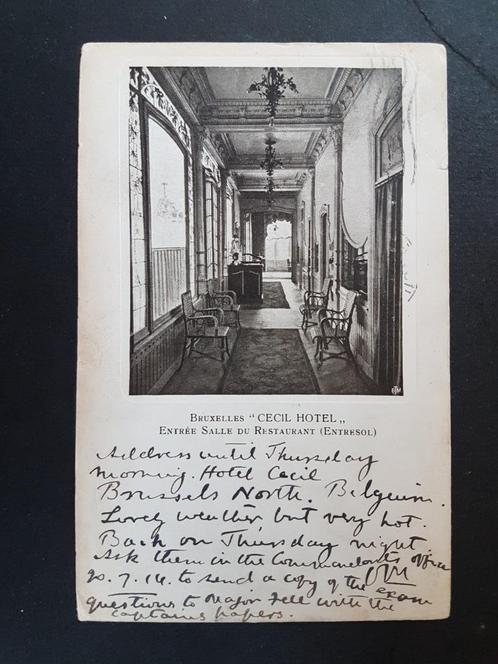 BRUXELLES "CECIL HOTEL„
ENTRÉE SALLE DU RESTAURANT (ENTRESOL)
Address until Thursday
morning. Hotel Cecil
Brussels North. Belgium.
Lovely weather, but very hot.
Back on Thursday night
Ask them in the Commandants office
20.7.14. to send a copy of the exam
questions to Major Fell with the
captains papers.